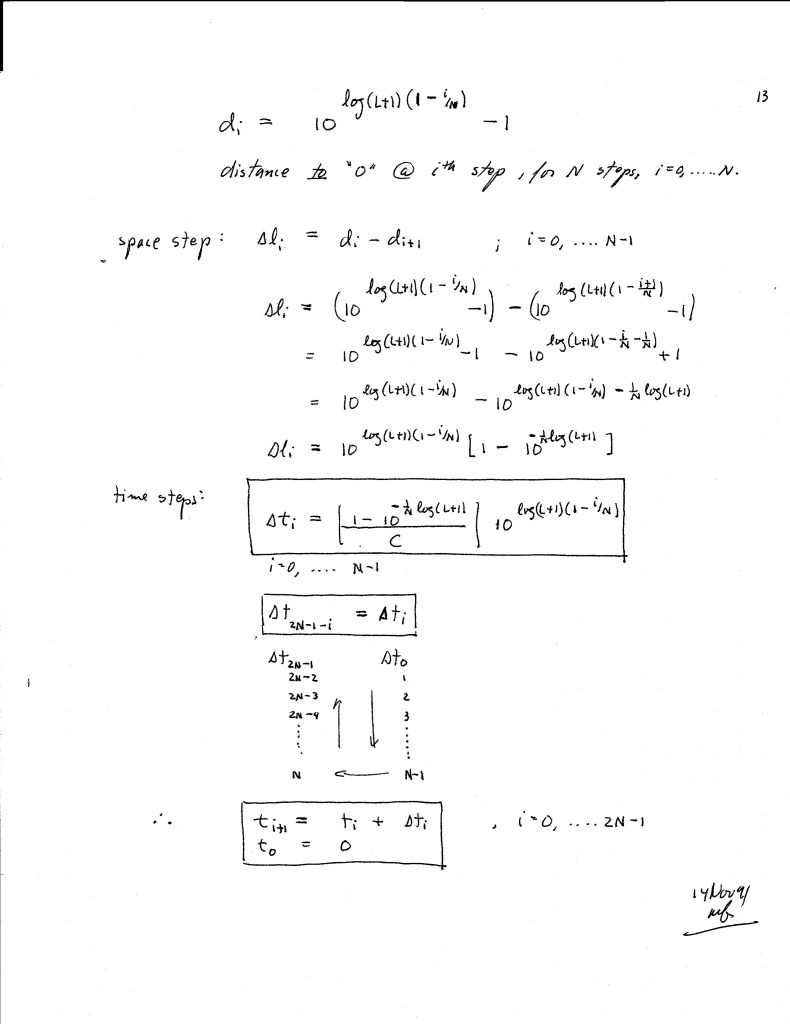 13
dᵢ = 10^(log(L+1)(1 - i/N)) - 1
distance to "0" @ ith step, for N steps, i=0, ..... N.
space step: Δlᵢ = dᵢ - dᵢ₊₁ ; i=0, .... N-1
Δlᵢ = (10^(log(L+1)(1 - i/N)) - 1) - (10^(log(L+1)(1 - (i+1)/N)) - 1)
= 10^(log(L+1)(1 - i/N)) - 1 - 10^(log(L+1)(1 - i/N - 1/N)) + 1
= 10^(log(L+1)(1 - i/N)) - 10^(log(L+1)(1 - i/N) - 1/N log(L+1))
Δlᵢ = 10^(log(L+1)(1 - i/N)) [1 - 10^(-1/N log(L+1))]
time steps: Δtᵢ = [(1 - 10^(-1/N log(L+1)))/C] 10^(log(L+1)(1 - i/N))
i=0, .... N-1
Δt_(2N-1-i) = Δtᵢ
Δt_(2N-1) Δt₀
2N-2 1
2N-3 2
2N-4 3
..... .....
N ← N-1
∴ tᵢ₊₁ = tᵢ + Δtᵢ , i=0, .... 2N-1
t₀ = 0
14 Nov 91